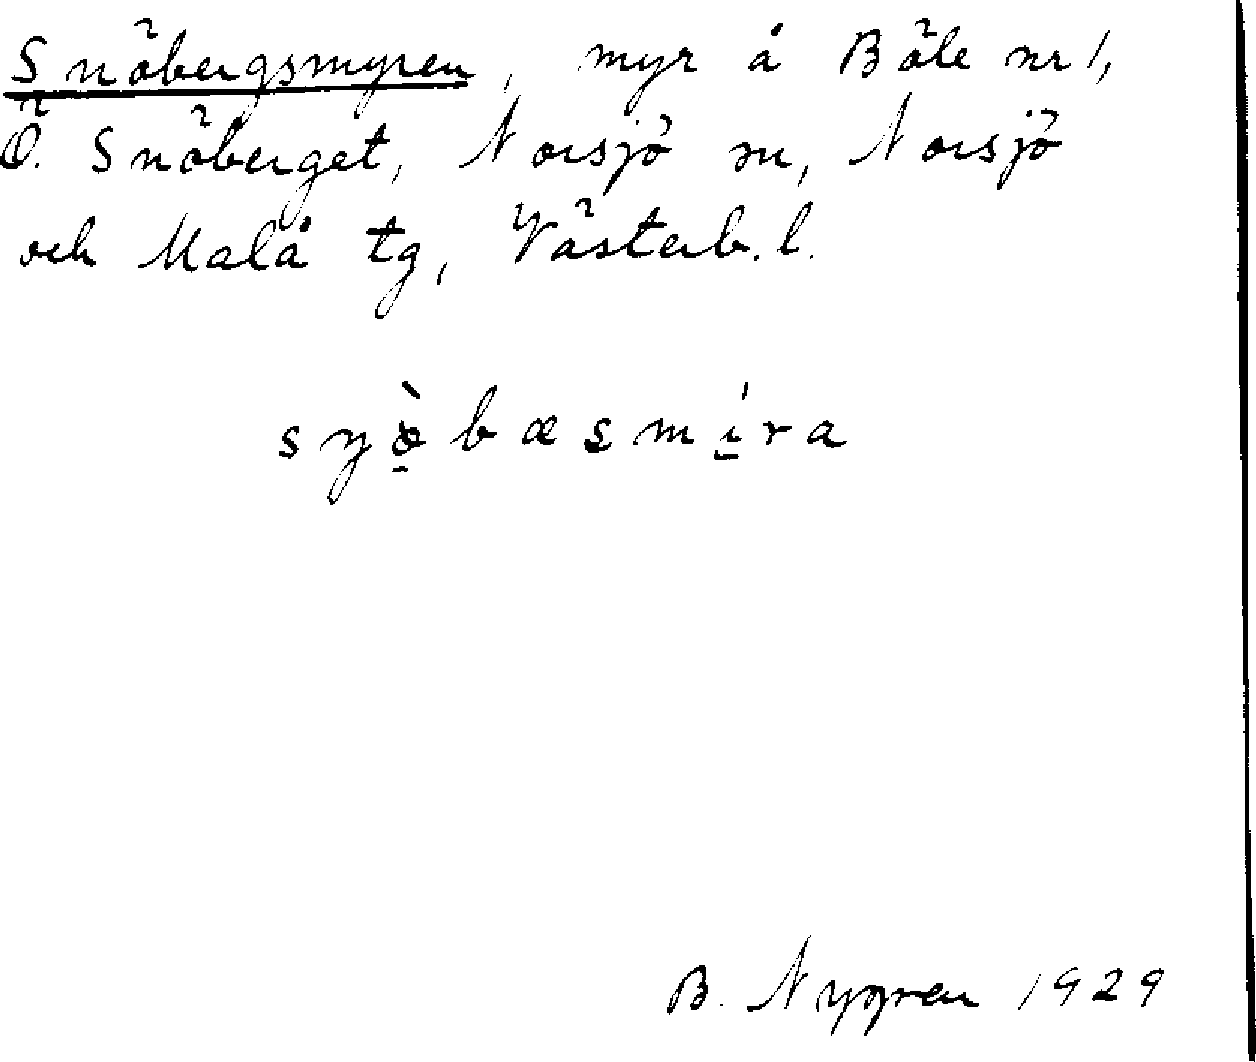 Snöbergsmyren, myr å Böle nr 1,
Ö. Snöberget, Norsjö sn, Norsjö
och Malå tg, Västerb. l.
B. Nygren 1929